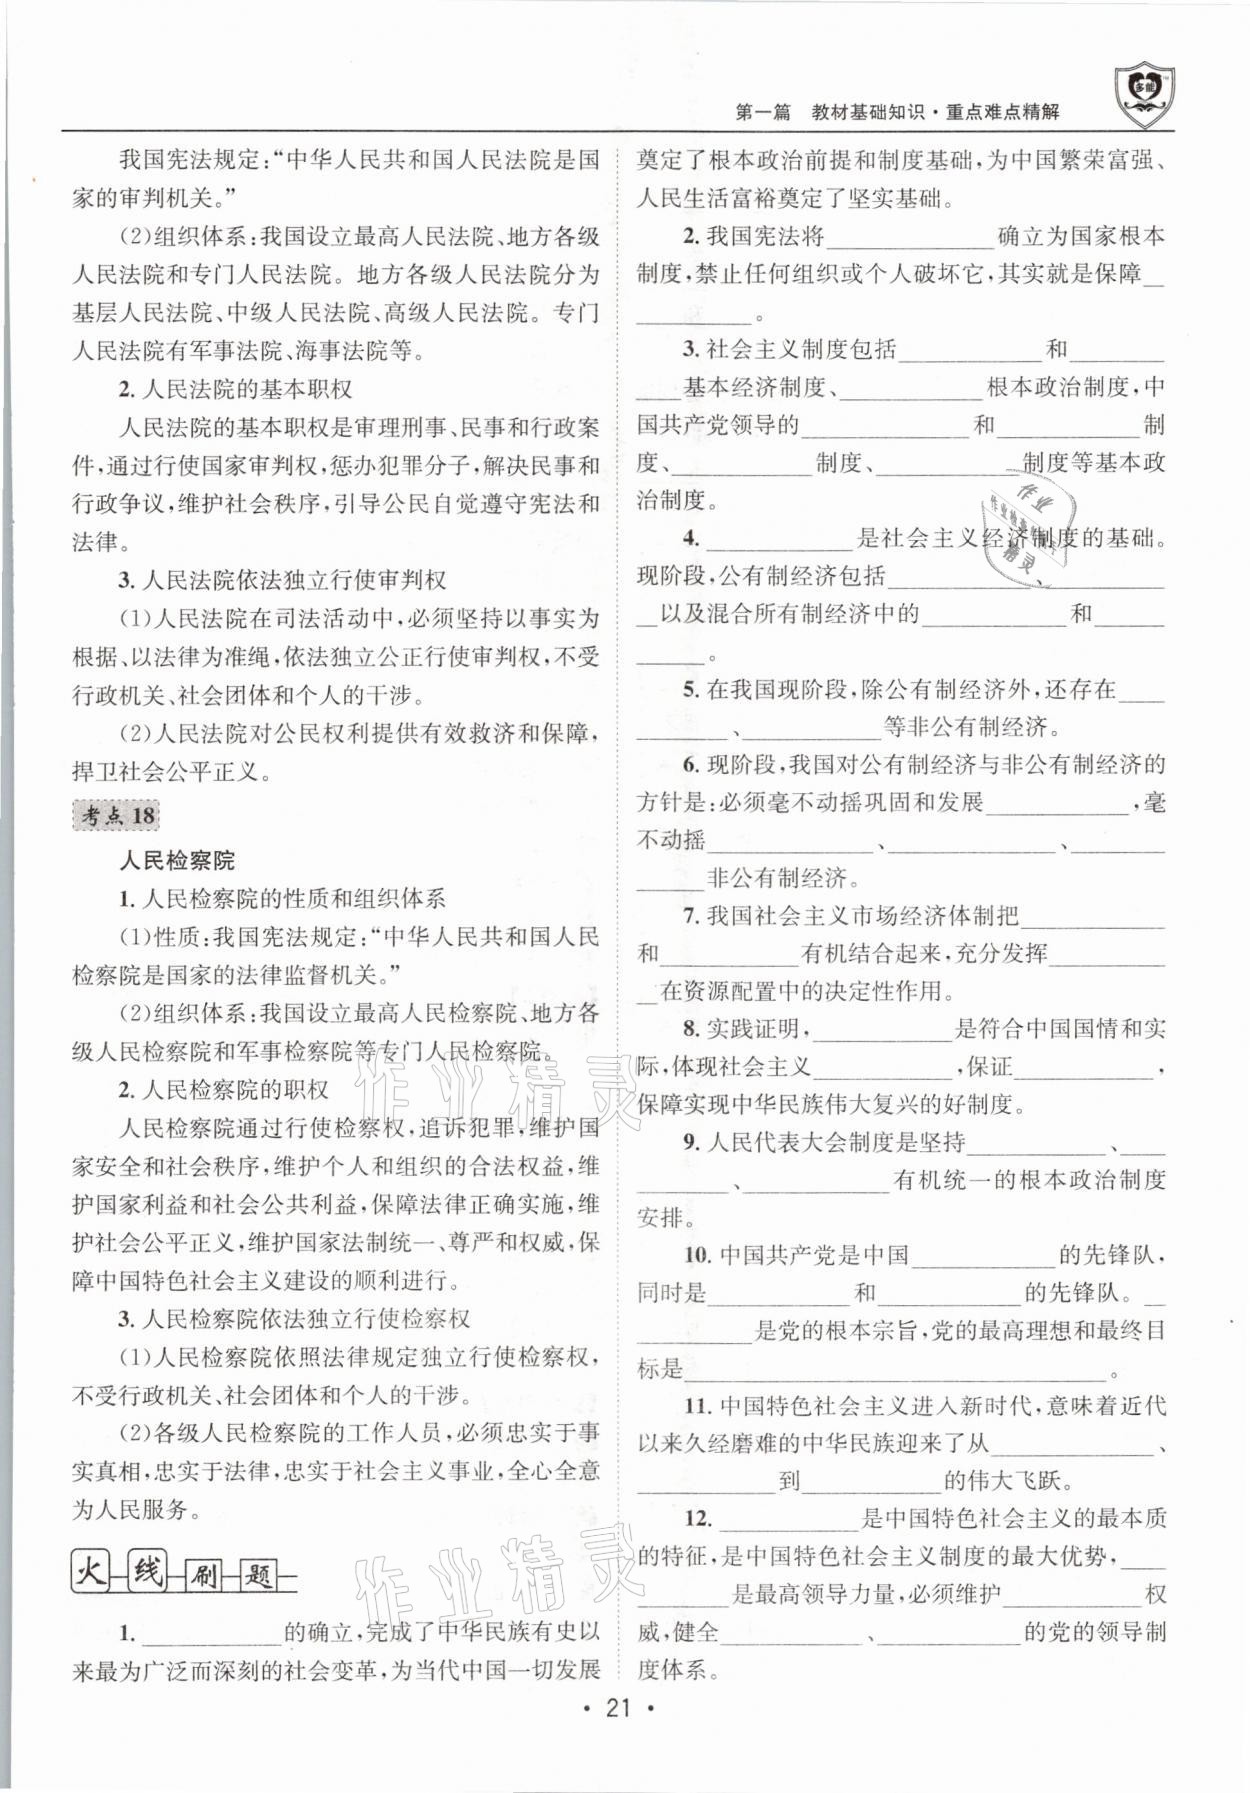 第一篇　教材基础知识·重点难点精解
多能
我国宪法规定:“中华人民共和国人民法院是国
家的审判机关。”
(2)组织体系:我国设立最高人民法院、地方各级
人民法院和专门人民法院。地方各级人民法院分为
基层人民法院、中级人民法院、高级人民法院。专门
人民法院有军事法院、海事法院等。
2. 人民法院的基本职权
人民法院的基本职权是审理刑事、民事和行政案
件,通过行使国家审判权,惩办犯罪分子,解决民事和
行政争议,维护社会秩序,引导公民自觉遵守宪法和
法律。
3. 人民法院依法独立行使审判权
(1)人民法院在司法活动中,必须坚持以事实为
根据、以法律为准绳,依法独立公正行使审判权,不受
行政机关、社会团体和个人的干涉。
(2)人民法院对公民权利提供有效救济和保障,
捍卫社会公平正义。
考点 18
人民检察院
1. 人民检察院的性质和组织体系
(1)性质:我国宪法规定:“中华人民共和国人民
检察院是国家的法律监督机关。”
(2)组织体系:我国设立最高人民检察院、地方各
级人民检察院和军事检察院等专门人民检察院。
2. 人民检察院的职权
人民检察院通过行使检察权,追诉犯罪,维护国
家安全和社会秩序,维护个人和组织的合法权益,维
护国家利益和社会公共利益,保障法律正确实施,维
护社会公平正义,维护国家法制统一、尊严和权威,保
障中国特色社会主义建设的顺利进行。
3. 人民检察院依法独立行使检察权
(1)人民检察院依照法律规定独立行使检察权,
不受行政机关、社会团体和个人的干涉。
(2)各级人民检察院的工作人员,必须忠实于事
实真相,忠实于法律,忠实于社会主义事业,全心全意
为人民服务。
火线刷题
1. ____________的确立,完成了中华民族有史以
来最为广泛而深刻的社会变革,为当代中国一切发展
奠定了根本政治前提和制度基础,为中国繁荣富强、
人民生活富裕奠定了坚实基础。
2. 我国宪法将______________确立为国家根本
制度,禁止任何组织或个人破坏它,其实就是保障__
__________。
3. 社会主义制度包括____________和________
____基本经济制度、____________根本政治制度,中
国共产党领导的______________和____________制
度、____________制度、____________制度等基本政
治制度。
4. ____________是社会主义经济制度的基础。
现阶段,公有制经济包括____________、__________
__以及混合所有制经济中的____________和______
______。
5. 在我国现阶段,除公有制经济外,还存在____
________、____________等非公有制经济。
6. 现阶段,我国对公有制经济与非公有制经济的
方针是:必须毫不动摇巩固和发展____________,毫
不动摇______________、______________、________
______非公有制经济。
7. 我国社会主义市场经济体制把____________
和____________有机结合起来,充分发挥__________
__在资源配置中的决定性作用。
8. 实践证明,____________是符合中国国情和实
际,体现社会主义____________,保证____________,
保障实现中华民族伟大复兴的好制度。
9. 人民代表大会制度是坚持____________、____
________、____________有机统一的根本政治制度
安排。
10. 中国共产党是中国____________的先锋队,
同时是____________和____________的先锋队。__
__________是党的根本宗旨,党的最高理想和最终目
标是____________________________________。
11. 中国特色社会主义进入新时代,意味着近代
以来久经磨难的中华民族迎来了从______________、
____________到____________的伟大飞跃。
12. ____________是中国特色社会主义的最本质
的特征,是中国特色社会主义制度的最大优势,____
________是最高领导力量,必须维护____________权
威,健全____________、____________的党的领导制
度体系。
作业
作业检查小助手
精灵
作业精灵
作业精灵
· 21 ·